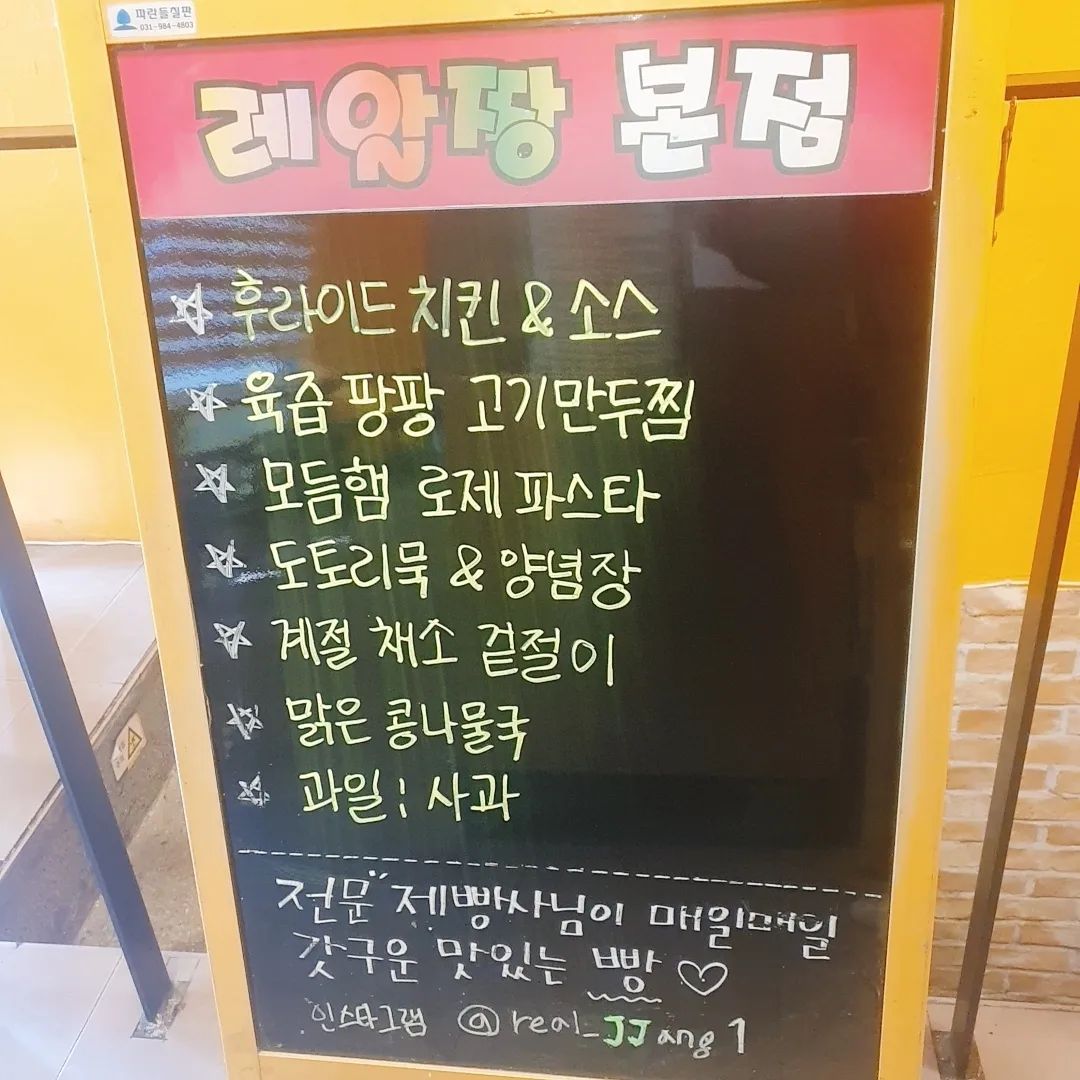 파란들칠판
031-984-4803
레알짱 본점
☆ 후라이드 치킨 & 소스
☆ 육즙 팡팡 고기만두찜
☆ 모듬햄 로제 파스타
☆ 도토리묵 & 양념장
☆ 계절 채소 겉절이
☆ 맑은 콩나물국
☆ 과일 : 사과
전문" 제빵사님이 매일매일
갓구운 맛있는 빵 ♡
인스타그램 @real_JJang1